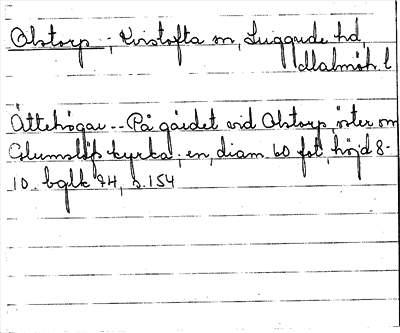 Olstorp, Kvistofta sn, Luggude hd,
Malmöh. l
Ättehögar -- På gärdet vid Olstorp, öster om
Glumslöf kyrka, en, diam. 60 fot, höjd 8-
10. bglk 74, s. 154